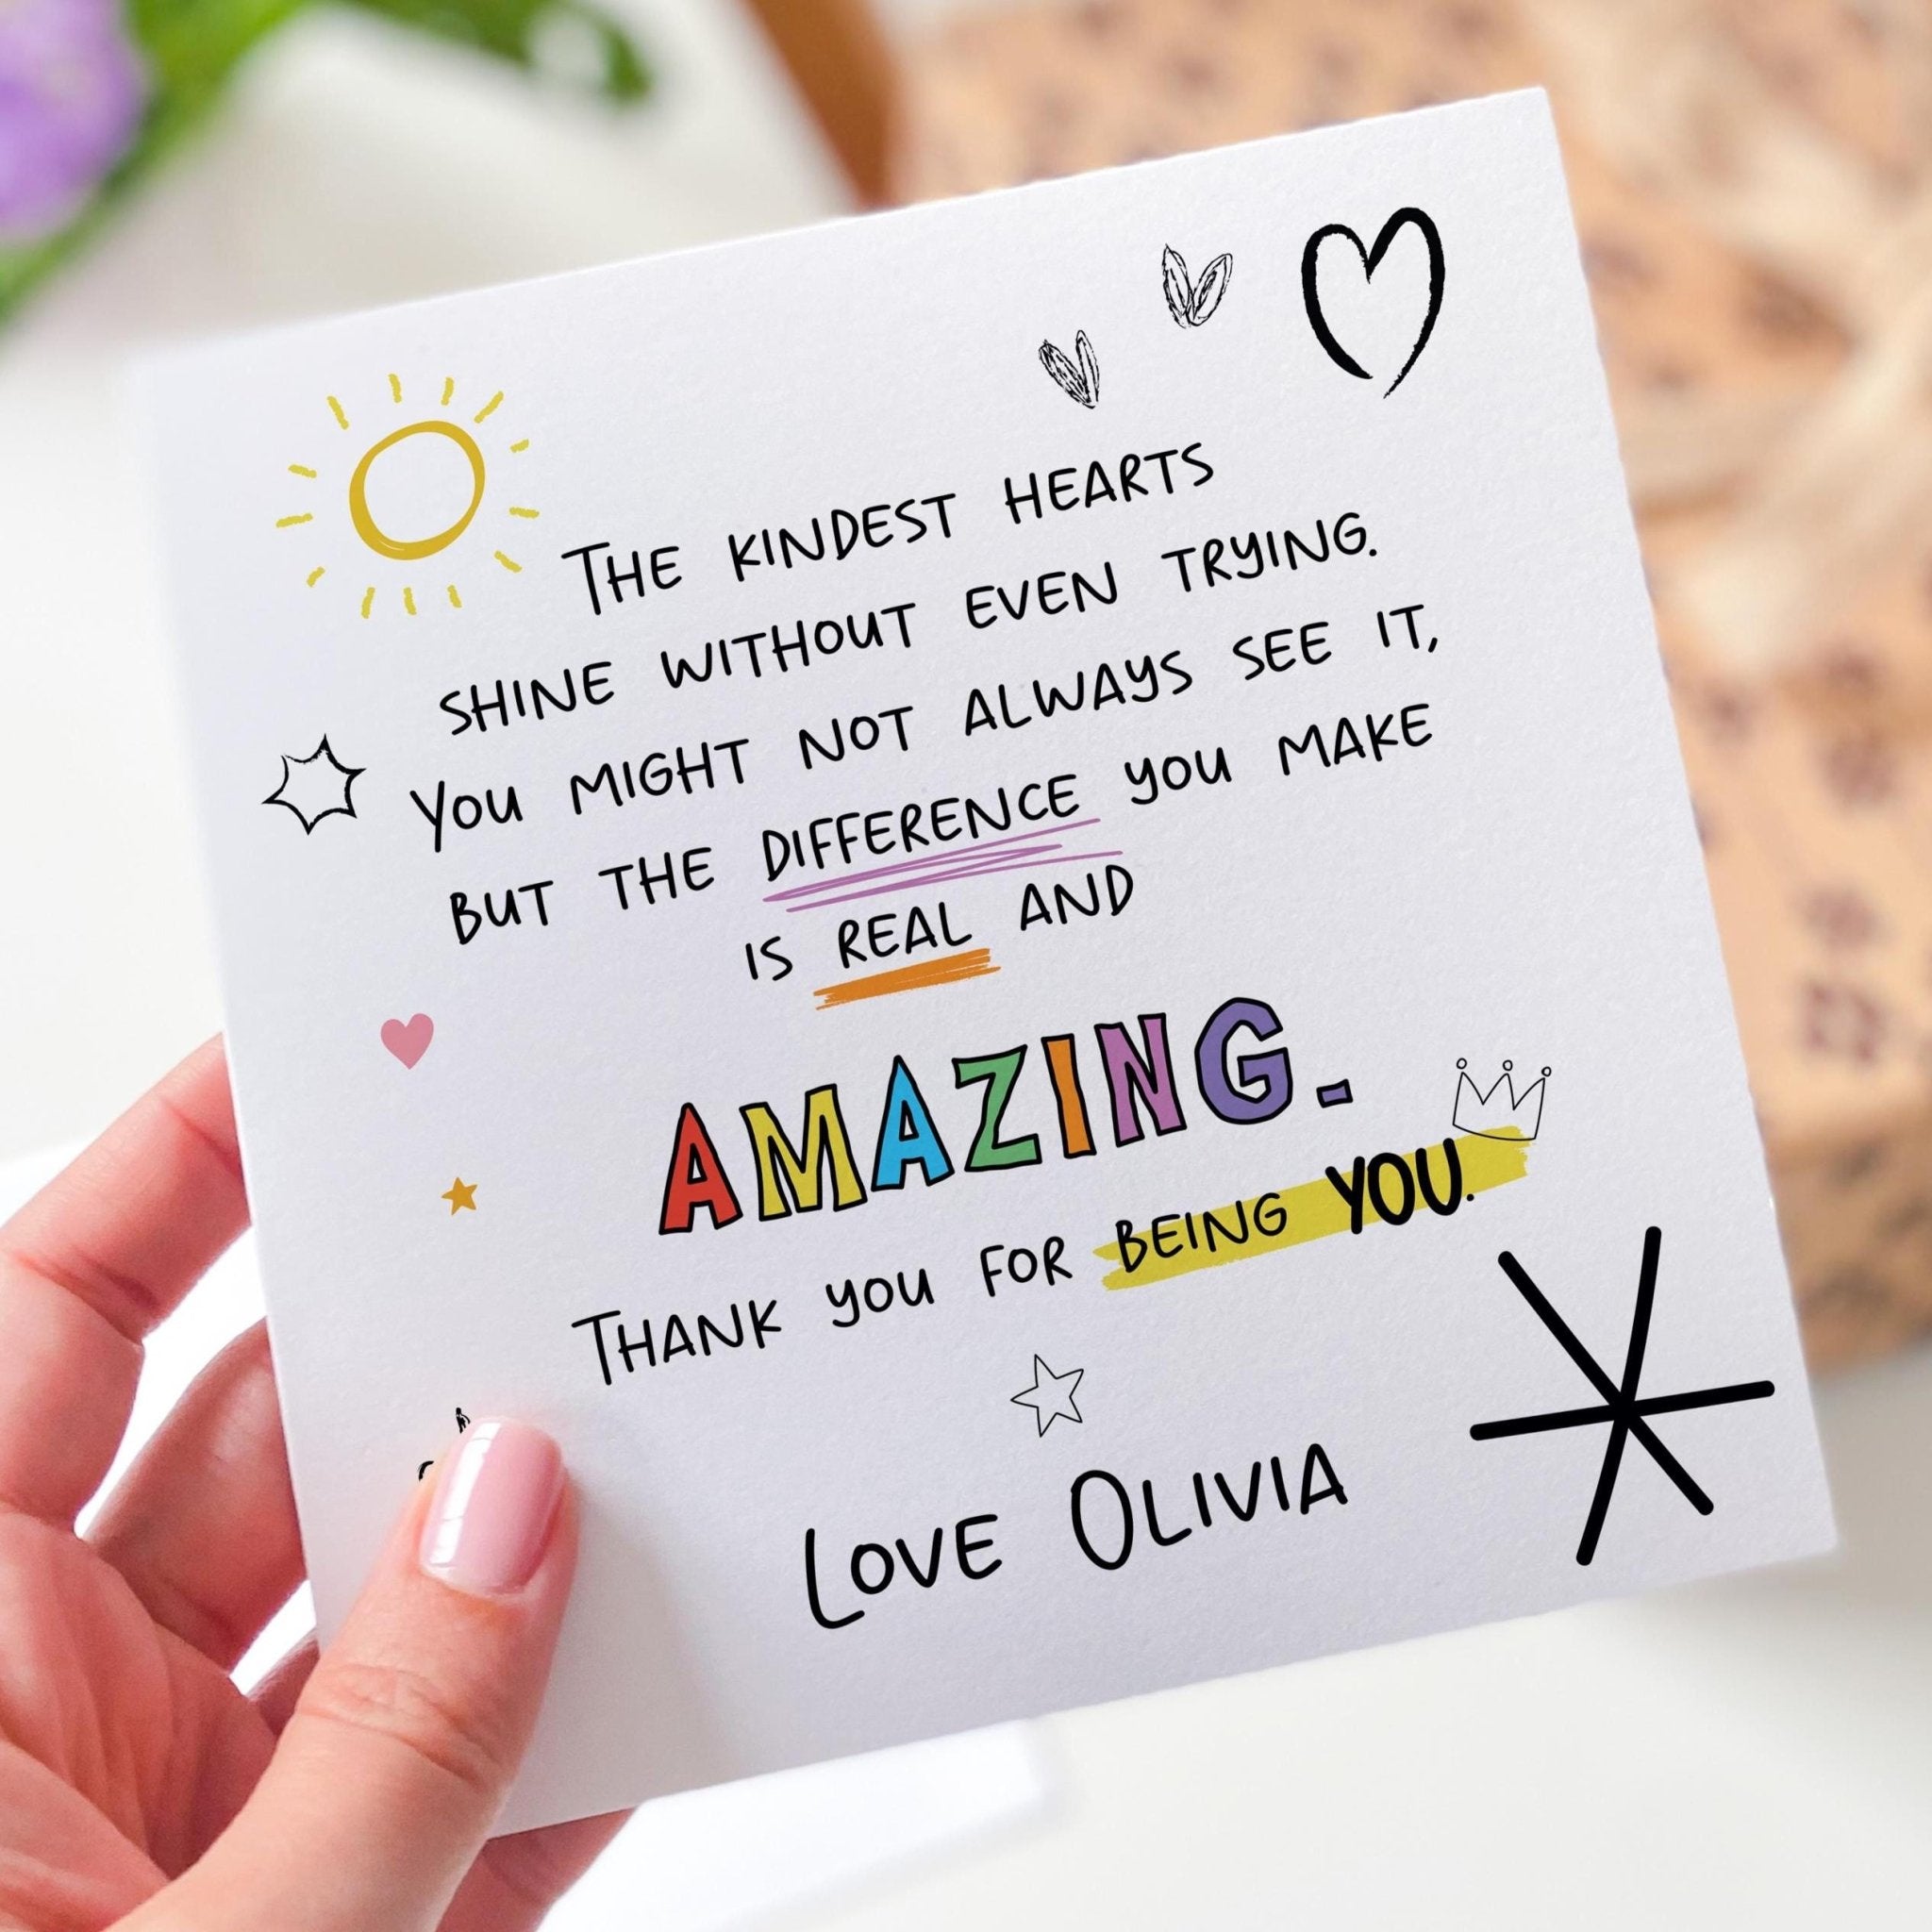 THE KINDEST HEARTS
SHINE WITHOUT EVEN TRYING.
YOU MIGHT NOT ALWAYS SEE IT,
BUT THE DIFFERENCE YOU MAKE
IS REAL AND
AMAZING.
THANK YOU FOR BEING YOU.
LOVE OLIVIA